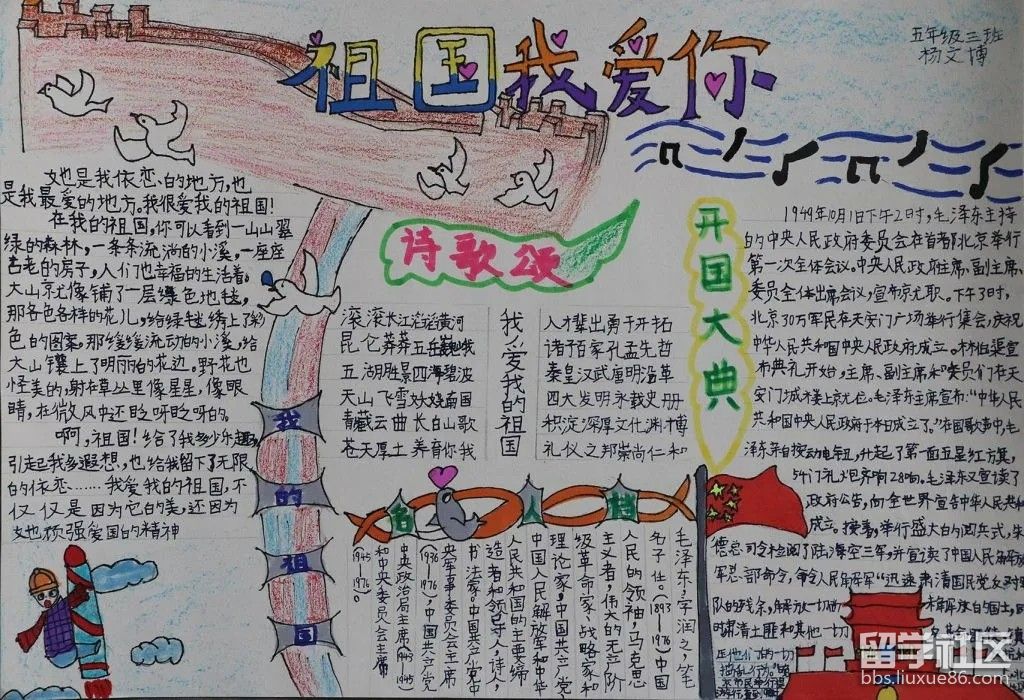 祖国我爱你
五年级三班
杨文博
她是我依恋的地方,也
是我最爱的地方。我很爱我的祖国!
在我的祖国,你可以看到一山山翠
绿的森林,一条条流淌的小溪,一座座
古老的房子,人们也幸福的生活着。
大山就像铺了一层绿色地毯,
那各色各样的花儿,给绿毯绣上了彩
色的图案。那缓缓流动的小溪,给
大山镶上了明丽的花边。野花也
怪美的,躲在草丛里像星星,像眼
睛,在微风中还眨呀眨呀的。
啊,祖国!给了我多少乐趣,
引起我多遐想,也给我留下了无限
的依恋……我爱我的祖国,不
仅仅是因为它的美,还因为
她顽强爱国的精神
我的祖国
诗歌颂
滚滚长江滔滔黄河
昆仑莽莽五岳巍峨
五湖胜景四海碧波
天山飞雪妙娆南国
青藏云曲长白山歌
苍天厚土养育你我
我爱我的祖国
人才辈出勇于开拓
诸子百家孔孟先哲
秦皇汉武唐明沿革
四大发明永载史册
积淀深厚文化渊博
礼仪之邦崇尚仁和
名人档
毛泽东,字润之,笔
名子任(1893—1976)中国
人民的领袖,马克思
主义者,伟大的无产阶
级革命家、战略家和
理论家,中国共产党
中国人民解放军和中华
人民共和国的主要缔
造者和领导人,诗人,
书法家。中国共产党中
央军事委员会主席
(1936—1976),中国共产党
中央政治局主席(1943—1945)
和中央委员会主席
(1945—1976)。
开国大典
1949年10月1日下午2时,毛泽东主持
的中央人民政府委员会在首都北京举行
第一次全体会议。中央人民政府主席、副主席、
委员全体出席会议,宣布就职。下午3时,
北京30万军民在天安门广场举行集会,庆祝
中华人民共和国中央人民政府成立。林伯渠宣
布典礼开始,主席、副主席和委员们在天
安门城楼上就位。毛泽东主席宣布:“中华人民
共和国中央人民政府于本日成立了。”在国歌声中,毛
泽东亲自按动电钮,升起了第一面五星红旗,
54门礼炮齐响28响。毛泽东又宣读了
政府公告,向全世界宣布中华人民共和
成立。接着,举行盛大的阅兵式,朱
德总司令检阅了陆海空三军,并宣读了中国人民解放
军总部命令,命令人民解放军“迅速肃清国民党反对
队的残余,解放一切
未解放的国土,同
时肃清土匪和其他一切
留学社区
bbs.liuxue86.com